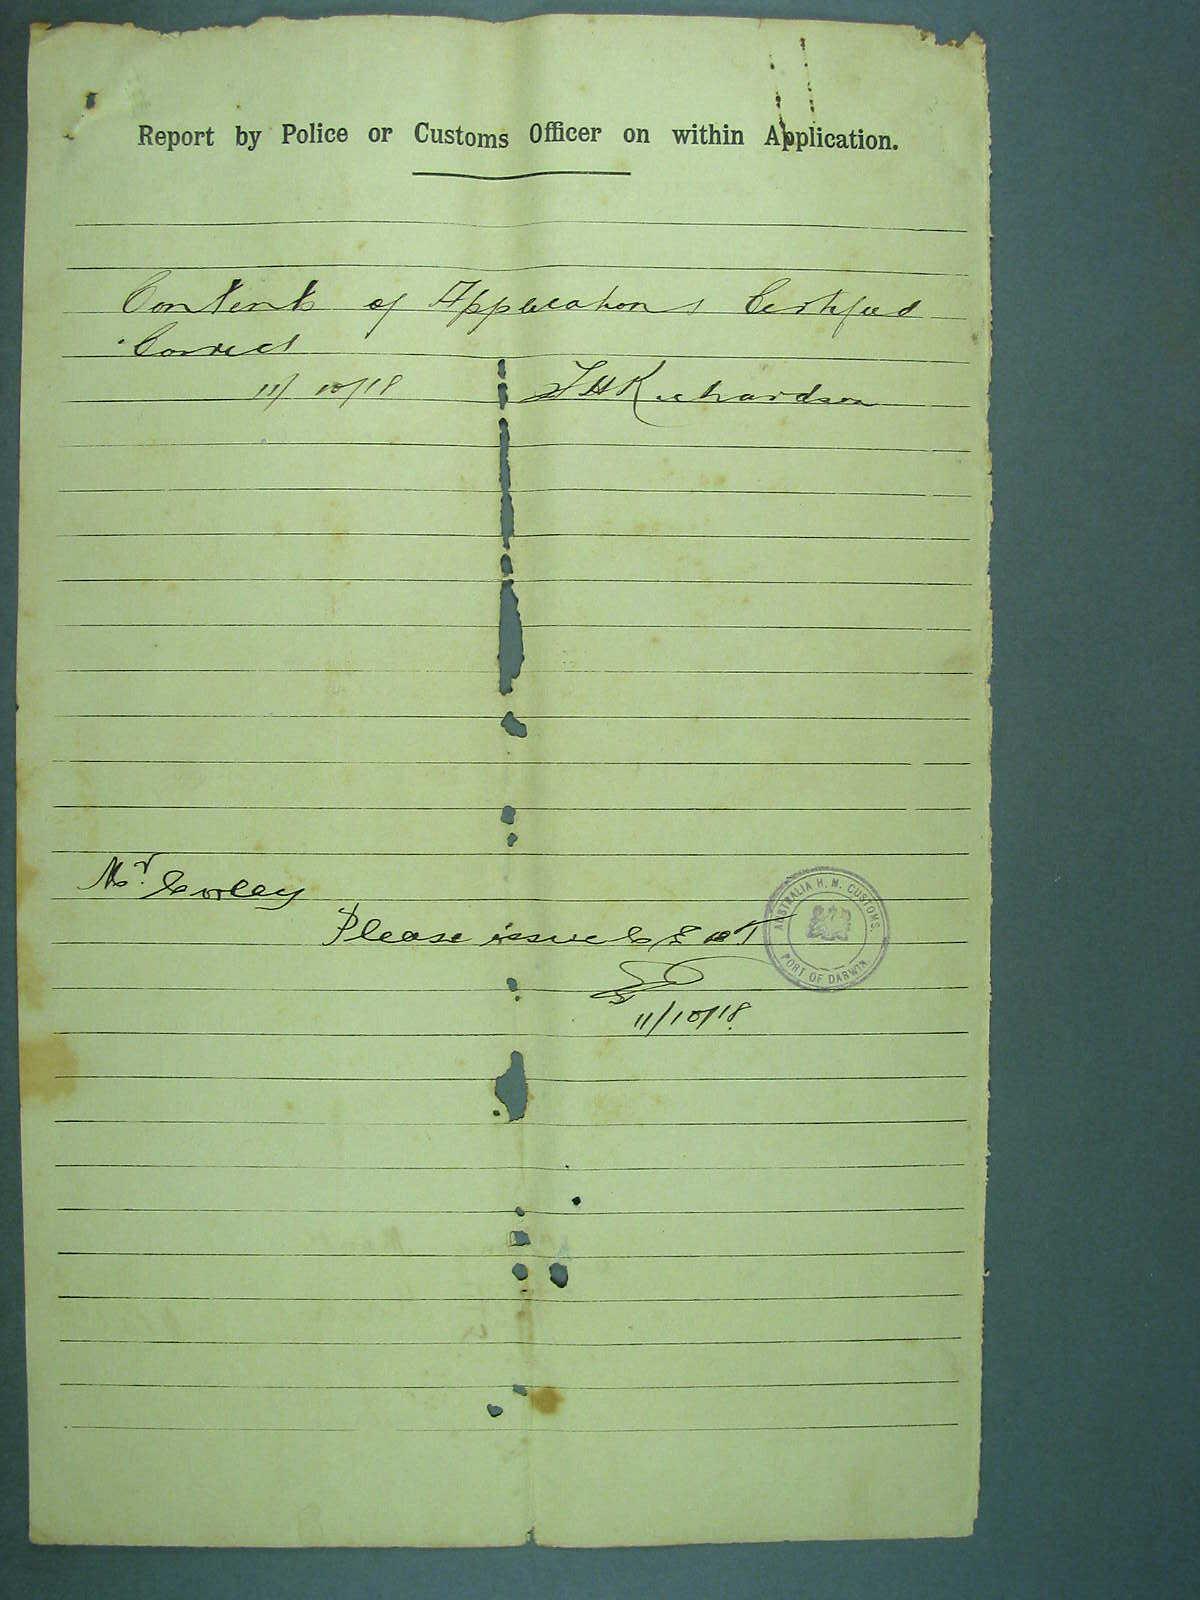 Report by Police or Customs Officer on within Application.
Contents of Applications Certified
Correct
11/10/18 Richardson
Mr. Corley
Please issue C E D T
11/10/18
AUSTRALIA H. M. CUSTOMS.
PORT OF DARWIN